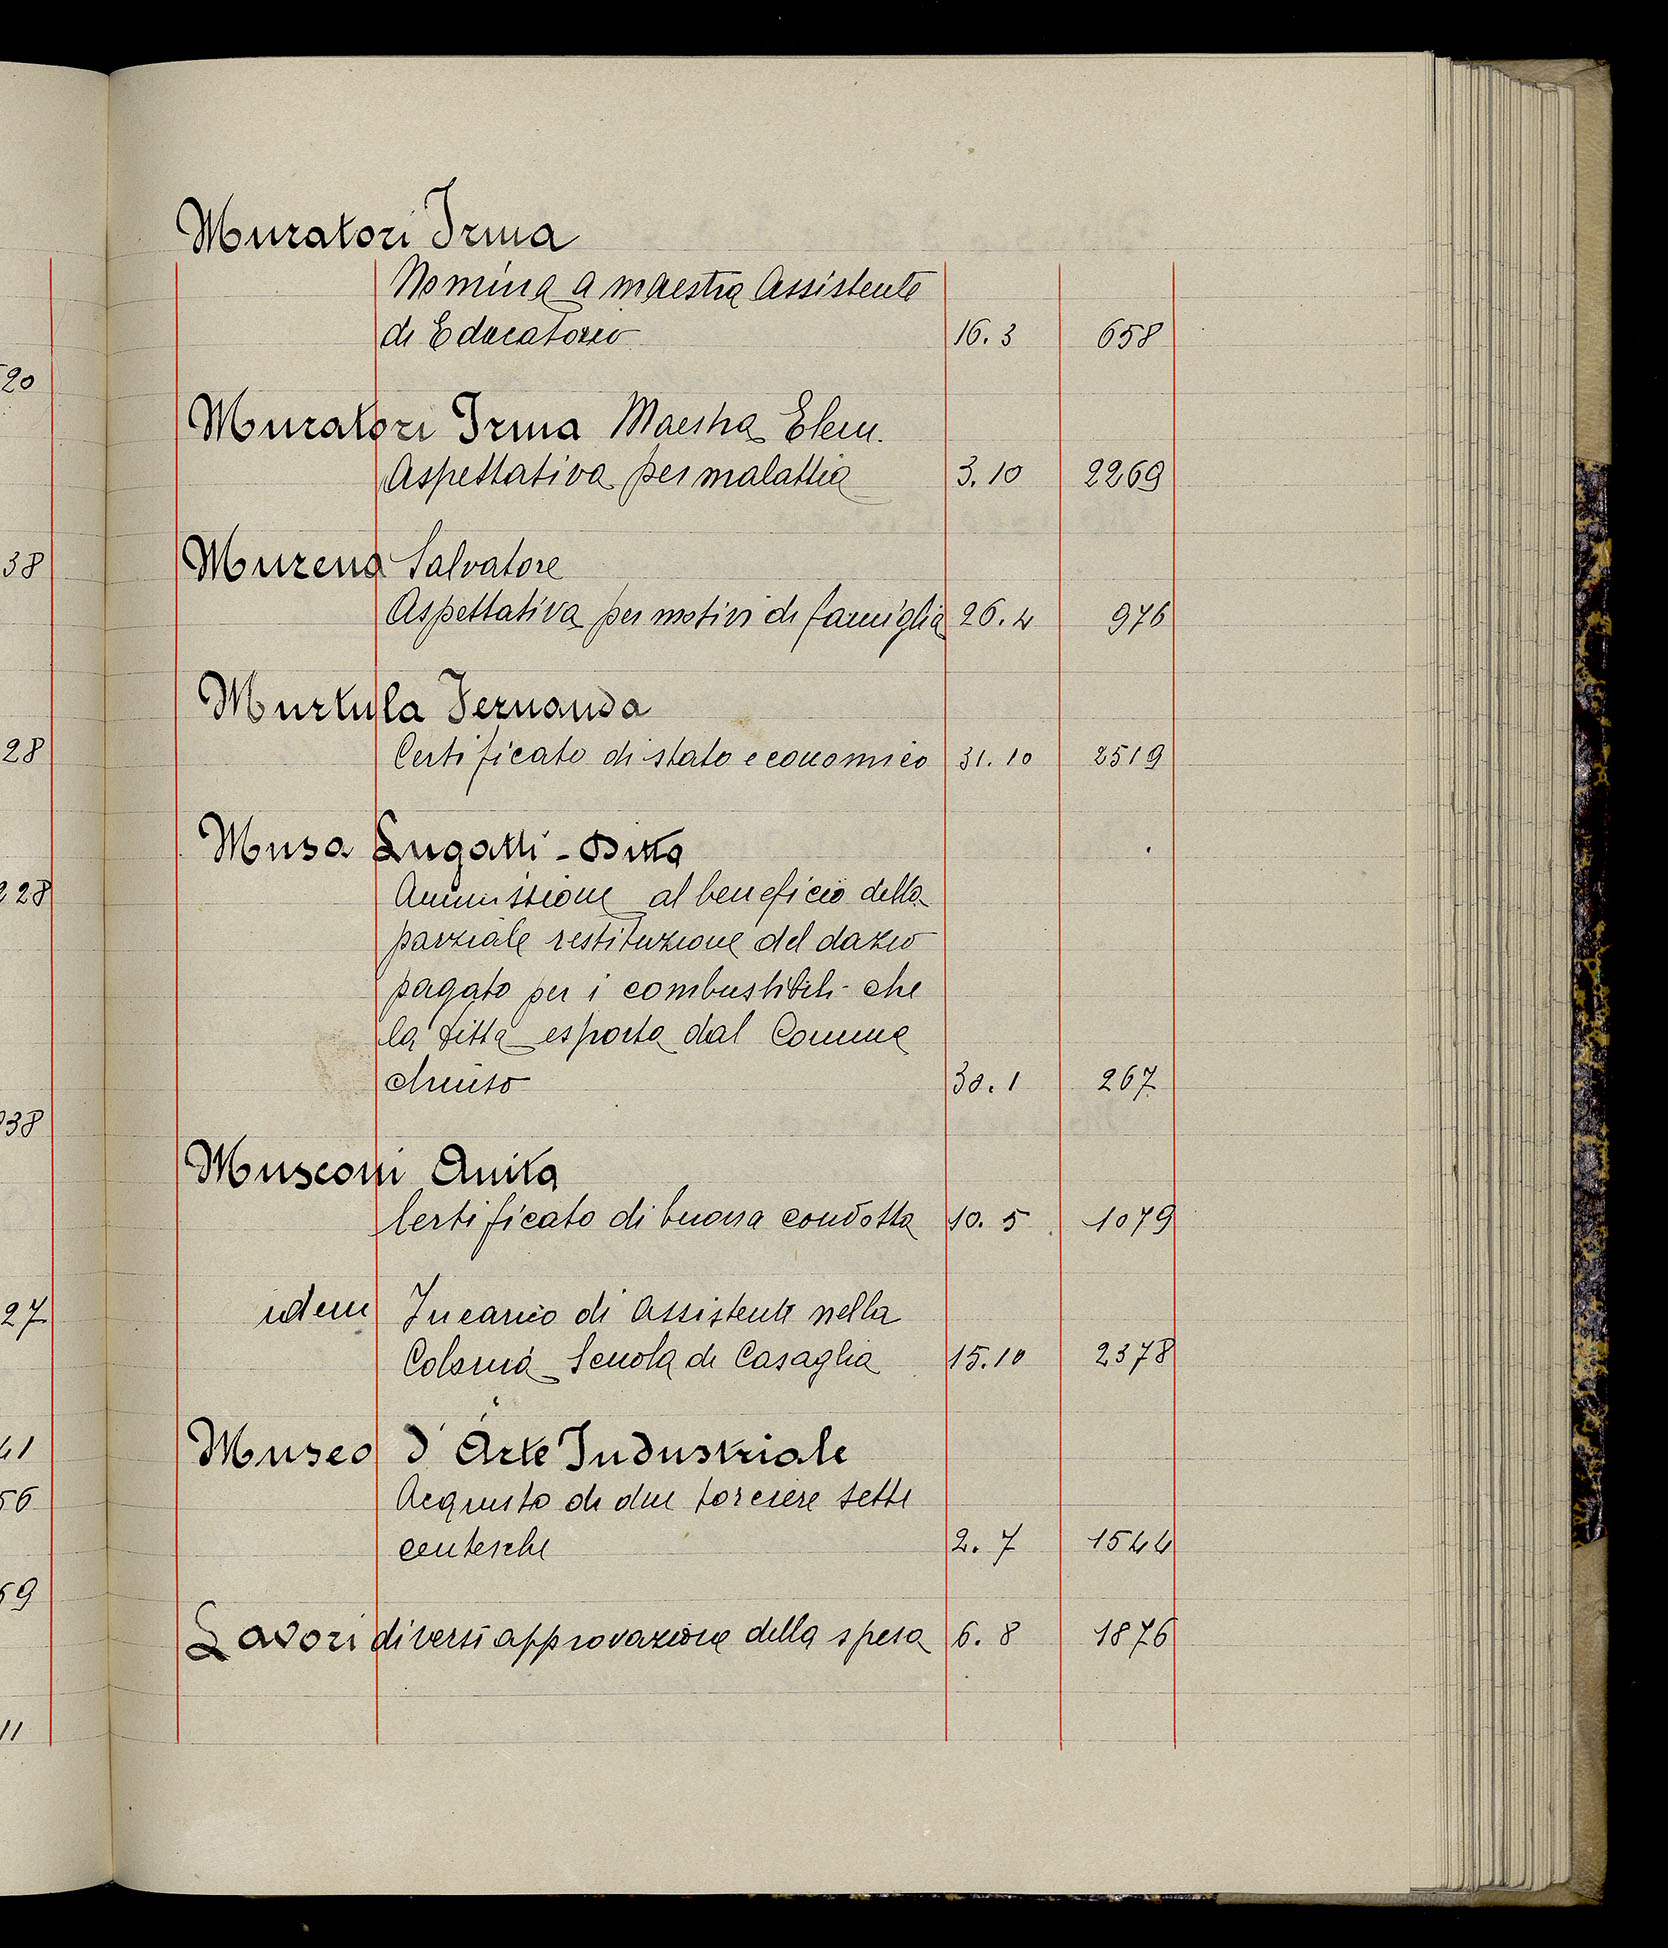 Muratori Irma
Nomina a maestra Assistente
di Educatorio 16.3 658
Muratori Irma Maestra Elem.
Aspettativa per malattia 3.10 2269
Murena Salvatore
Aspettativa per motivi di famiglia 26.4 976
Murtula Fernanda
Certificato di stato economico 31.10 2519
Musa Lugatti - Ditta
Ammissione al beneficio della
parziale restituzione del dazio
pagato per i combustibili che
la ditta esporta dal Comune
chiuso 30.1 267
Musconi Anita
Certificato di buona condotta 10.5 1079
idem Incarico di Assistente nella
Colonia Scuola di Casaglia 15.10 2378
Museo d'Arte Industriale
Acquisto di due torciere sette
centesche 2.7 1544
Lavori diversi approvazione della spesa 6.8 1876
20
38
28
228
38
27
41
56
59
11